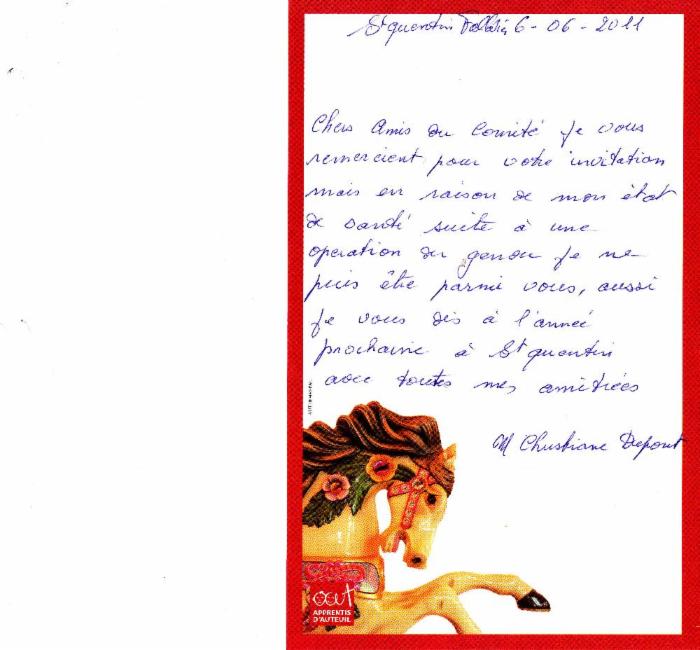 St quentin 6 - 06 - 2011
Chers Amis du Comité je vous
remercient pour votre invitation
mais en raison de mon état
de santé suite à une
operation du genou je ne
puis être parmi vous, aussi
je vous dis à l'année
prochaine à St quentin
avec toutes mes amitiées
M Christiane Dupont
oaut
APPRENTIS
D'AUTEUIL